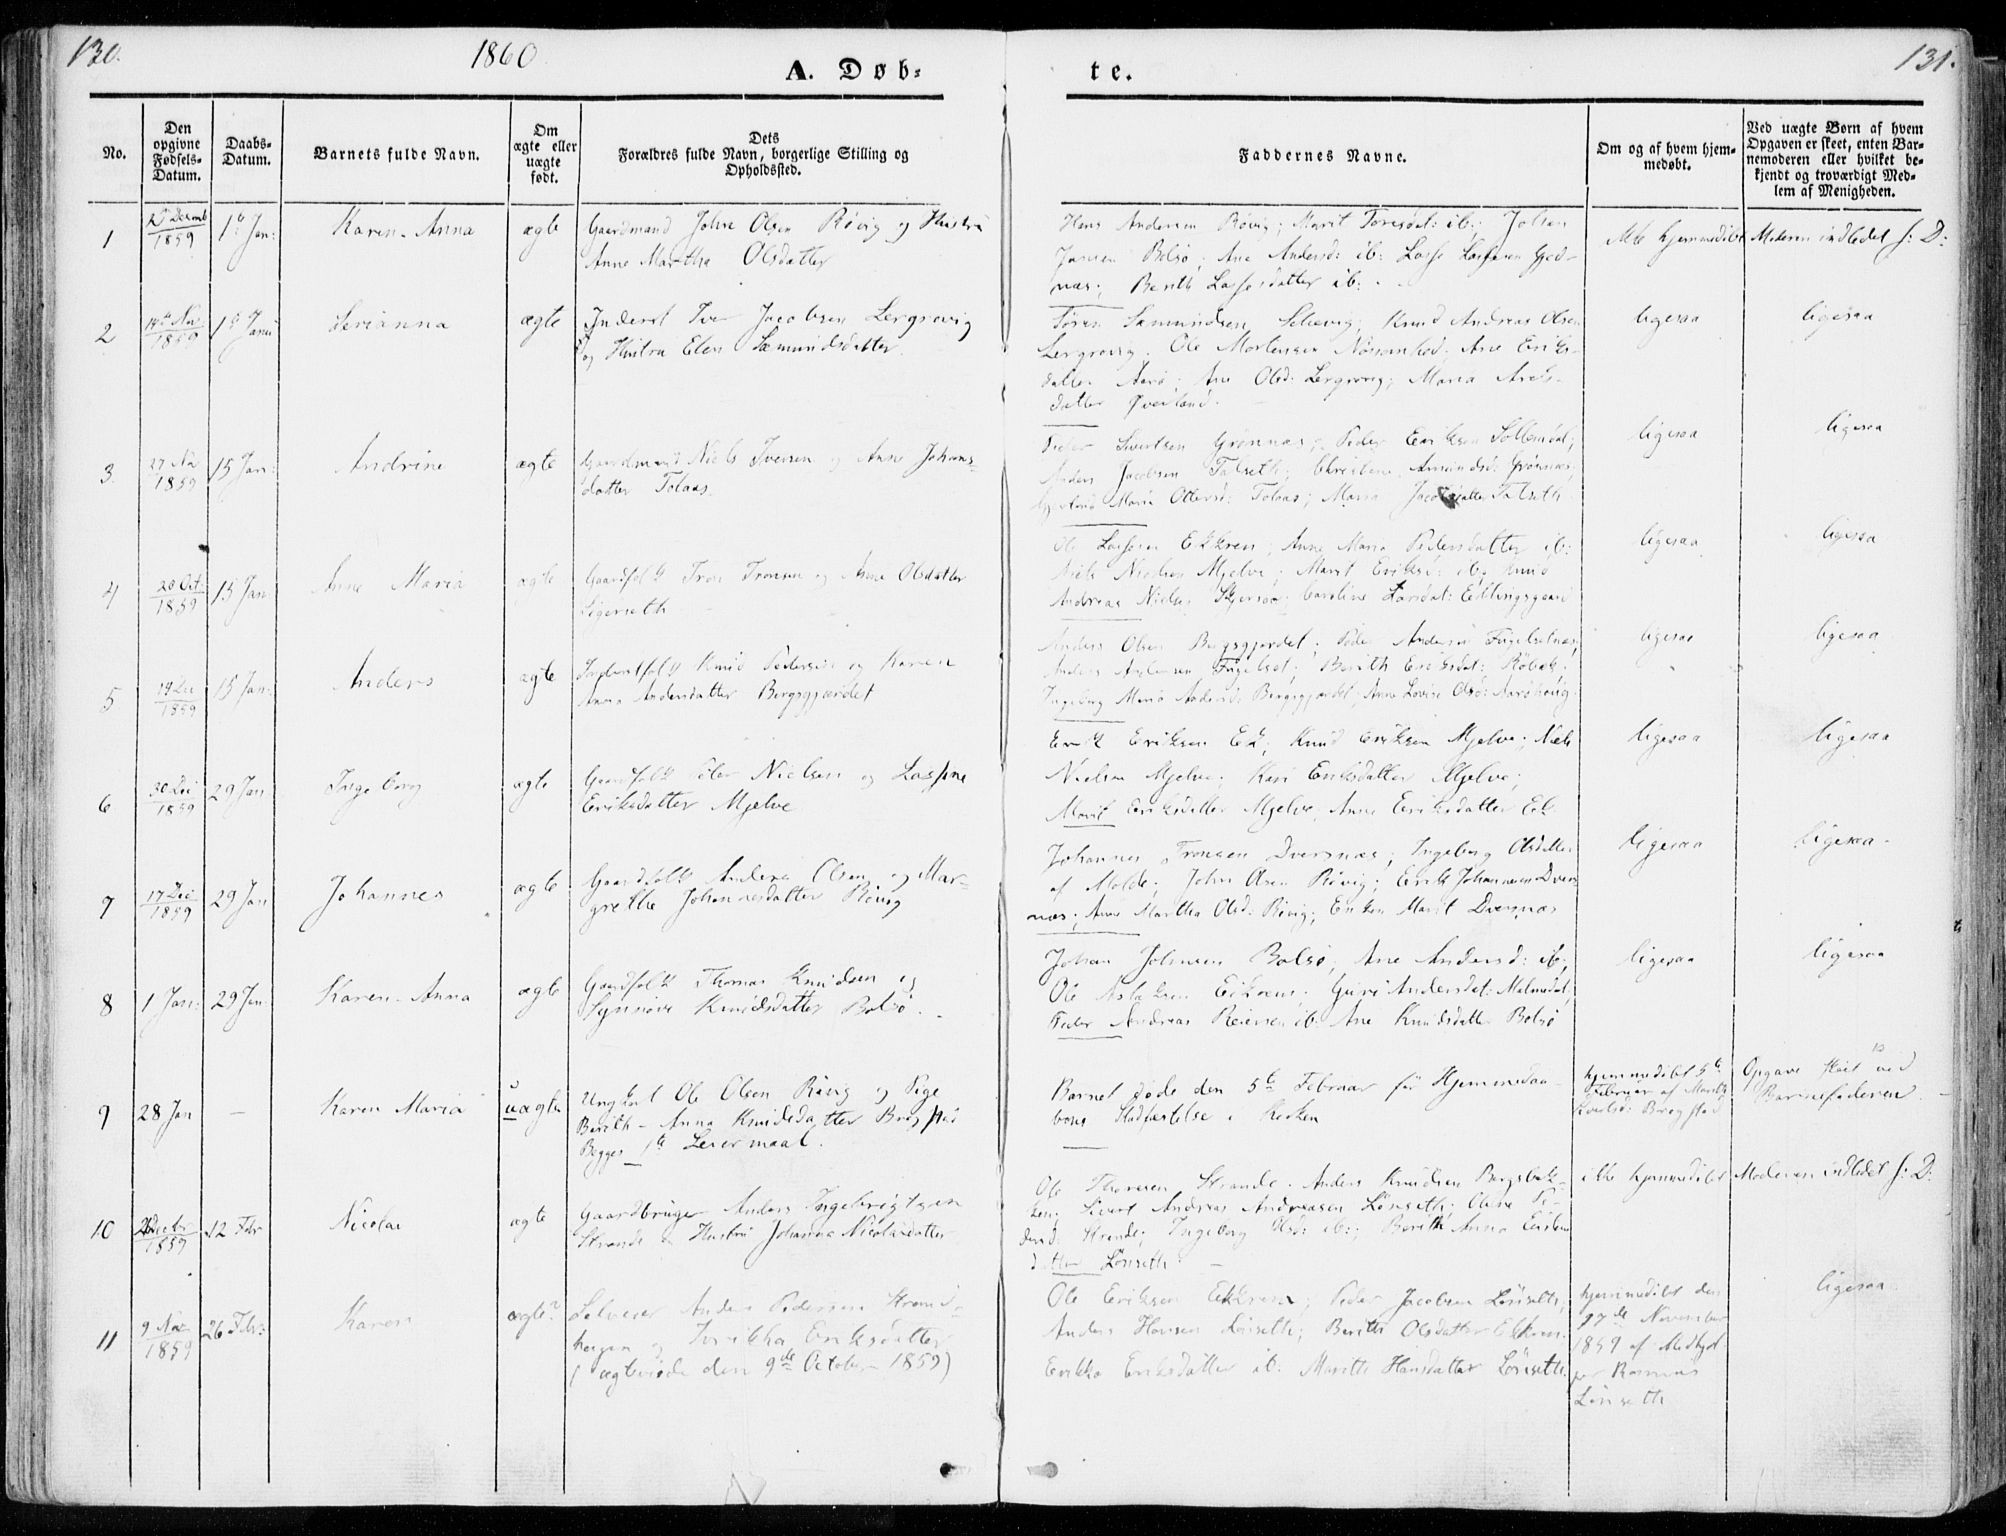 130.
1860
A. Døb=
te.
131.
No.
Den opgivne Fødsels-Datum.
Daabs-Datum.
Barnets fulde Navn.
Om ægte eller uægte født.
Dets Forældres fulde Navn, borgerlige Stilling og Opholdssted.
Faddernes Navne.
Om og af hvem hjem-medøbt.
Ved uægte Børn af hvem Opgaven er skeet, enten Bar-nemoderen eller hvilket be-kjendt og troværdigt Med-lem af Menigheden.
1
1859
1ste Jan:
Karen-Anna
ægte
Gaardmand John Olsen Røvig og Hustru
Anne Martha Olsdatter
Hans Andersen Røvig; Marit Toresdat: ib:; Johan
Jansen Bolsø; Ane Andersd: ib: Lasse Lassesen Gjed-
næs; Berith Lassesdatter ib:
ikke hjemmedøbt
Moderen indledet s: D:
2
1859
Serianna
ægte
Inderst Iver Jacobsen Lergrovig
og Hustru Elen Sæmundsdatter
Søren Sæmundsen; Knud Andreas Olsen
Lergrovig. Ole Mortensen; Ane Eriks-
datter Aarø; Ane Olsd: Lergrovig; Maria
datter Øverland.
ligesaa
ligesaa
3.
27 No
1859
15 Jan:
Andrine
ægte
Gaardmand Niels Iversen og Anne Johans-
datter Tolaas
Peder Sivertsen Grønnæs; Peder Eriksen
Anders Jacobsen Talseth; Christine Amundsd: Grønnæs;
Maria Ottersd: Tolaas; Maria Jacobsdatter Talseth
ligesaa
ligesaa
4
20 Oct
1859
15 Jan
Anne Maria
ægte
Gaardfolk Tron Tronsen og Anne Olsdatter
Ole Lassesen Ekkren; Anne Maria Pedersdatter ib:
Niels Nielsen Mjelve; Marit Eriksd: ib; Knud
Andreas Nielsen; Caroline Larsdat:
ligesaa
ligesaa
5
19 Dec
1859
15 Jan:
Anders
ægte
Inderstfolk Knud Pedersen og Karen
Anna Andersdatter Bergsgjærdet
Anders Olsen Bergsgjærdet; Peder Andersen
Anders Andersen Fugelset; Berith Eriksdat: Røbek;
Ingeborg Maria Andersd: Bergsgjærdet; Anne Lovise Olsd:
ligesaa
ligesaa
6
30 Dec
1859
29 Jan
Ingeborg
ægte
Gaardfolk Peder Nielsen og Lassine
Eriksdatter Mjelve
Erik Eriksen Ek; Knud Eriksen Mjelve; Niels
Nielsen Mjelve; Kari Eriksdatter Mjelve;
Marit Eriksdatter Mjelve; Anne Eriksdatter Ek
ligesaa
ligesaa
7
17 Dec
1859
29 Jan
Johannes
ægte
Gaardfolk Anders Olsen og Mar-
grethe Johannesdatter Røvig
Johannes Tronsen Dversnæs; Ingeborg Olsdatter
af Molde; John Olsen Røvig; Erik Johannesen Dvers
næs; Anne Martha Olsd: Røvig; Enken Marit Dversnæs
ligesaa
ligesaa.
8
1 Jan:
29 Jan
Karen-Anna
ægte
Gaardfolk Thomas Knudsen og
Synnøve Knudsdatter Bolsø.
Johan Johnsen Bolsø; Ane Andersd: ib;
Ole Aslaksen; Guri Andersdat: Malmedal;
Peder Andreas Reiersen ib: Ane Knudsdatter Bolsø
ligesaa
ligesaa
9
28 Jan
—
Karen Maria
uægte
Ungkarl Ole Olsen Røvig og Pige
Berith-Anna Knudsdatter Bragstad
Begges 1ste Leiermaal.
Barnet døde den 5te Februar før Hjemmedaa-
bens Stadfæstelse i Kirken
hjemmedøbt 5te
Februar af Marith
Sivertsd: Bragstad
Opgave skeet ved
Barnefaderen.
10
1859
12 Febr
Nicolai
ægte
Gaardbruger Anders Ingebrigtsen
Strande og Hustru Johanna Nicolaisdatter
Ole Thoresen Strande. Anders Knudsen Bergsbak-
ken; Sivert Andreas Andreasen Lønseth; Oline Pe-
dersd: Strande; Ingeborg Olsd: ib:; Berith Anna
datter Lønseth.
ikke hjemmedøbt
Moderen indledet s: D:
11
9 Nov
1859
26 Febr:
Karen
ægte?
Selveier Anders Pedersen
og Erikka Eriksdatter
(ægteviede den 9de October 1859)
Ole Eriksen Ekkren; Peder Jacobsen Lønseth;
Anders Hansen Lønseth; Berith Olsdatter Ekkren.
Erikka Eriksdatter ib: Marith Hansdatter Lønseth.
hjemmedøbt den
17de November
1859 af Medhjel-
per Rasmus
Lønseth
ligesaa